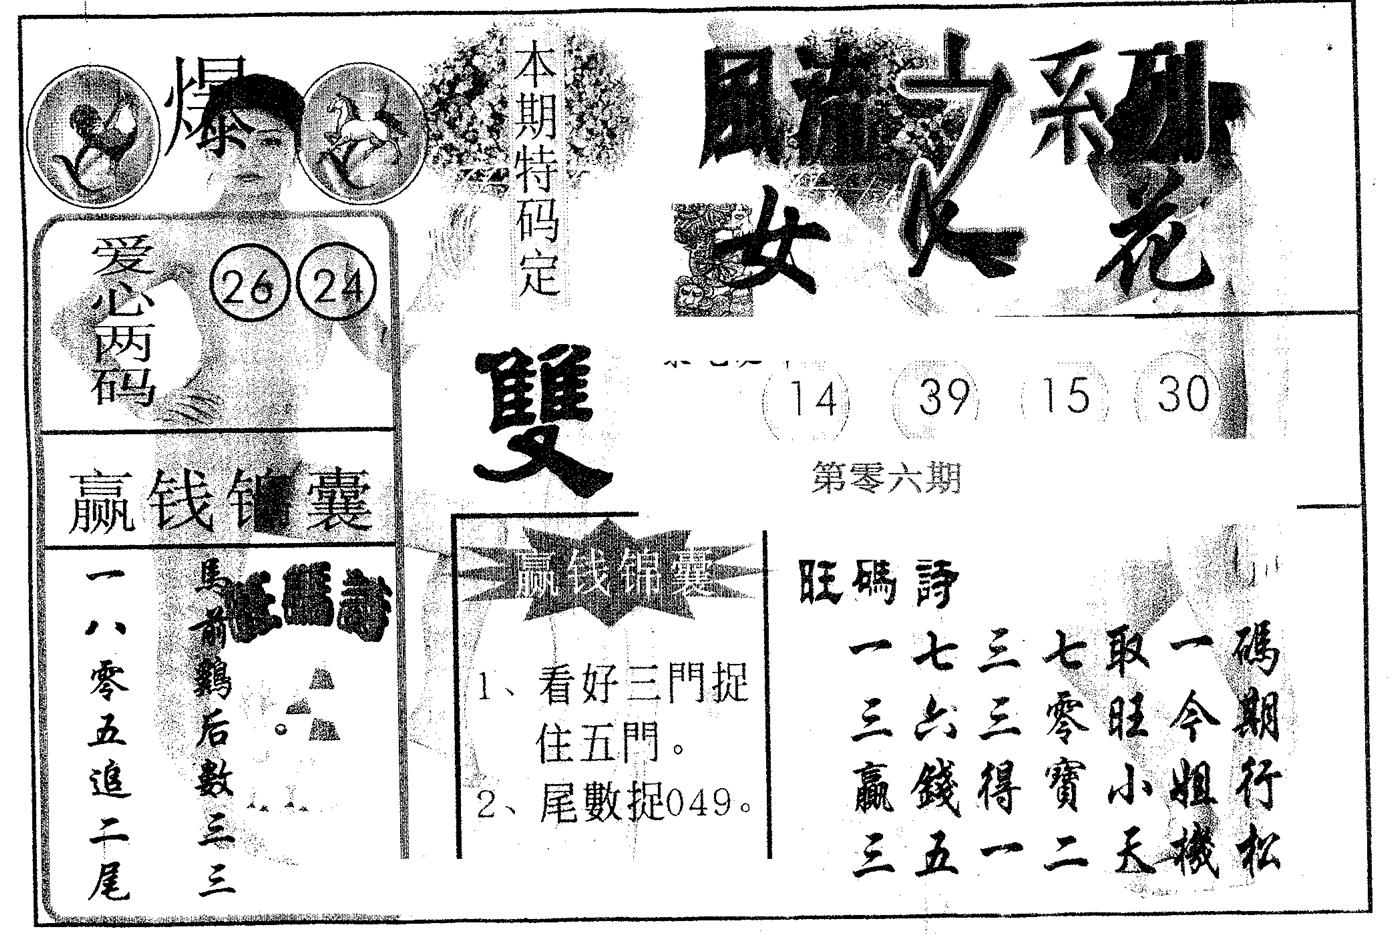 爆
本期特码定
雙
風流之系列
女人花
爱心两码
26 24
14 39 15 30
第零六期
赢钱锦囊
旺碼詩
馬前鷄后數三三
一八零五追二尾
赢钱锦囊
1、看好三門捉
住五門。
2、尾數捉049。
旺碼詩
一七三七取一碼
三六三零旺今期
贏錢得寶小姐行
三五一二天機松